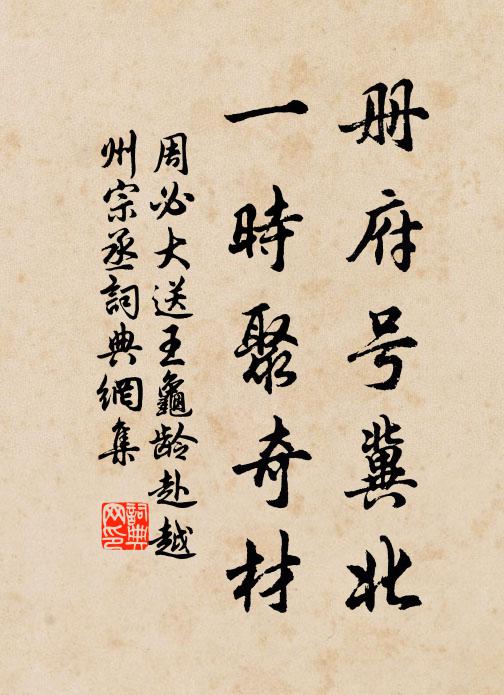 册府号冀北
一時聚奇材
周必大送王龜龄赴越
州宗丞詞典網集
詞典网印